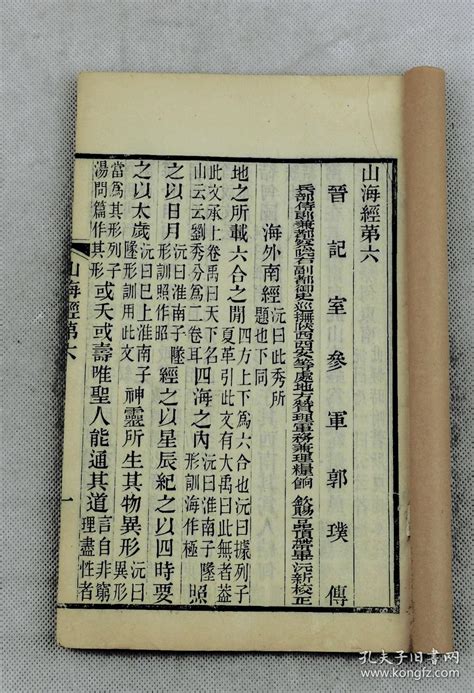 山海經第六
晉記室參軍郭璞傳
兵部侍郎兼都察院右副都御史巡撫陝西西安等處地方贊理軍務兼理糧餉 欽賜一品頂帶畢沅新校正
海外南經沅曰此秀所題也下同
地之所載六合之閒四方上下爲六合也沅曰據列子夏革引此文有大禹曰此無者葢
此文承上卷禹曰天下名山云云劉秀分爲二卷耳四海之內沅曰淮南子墬形訓海作極照
之以日月沅曰淮南子墬形訓照作昭經之以星辰紀之以四時要
之以太歲沅曰巳上淮南子墬形訓用此文神靈所生其物異形沅曰異形
當爲其形列子湯問篇作其形或夭或壽唯聖人能通其道言自非窮理盡性者
山海經第六 一
孔夫子旧书网
www.kongfz.com